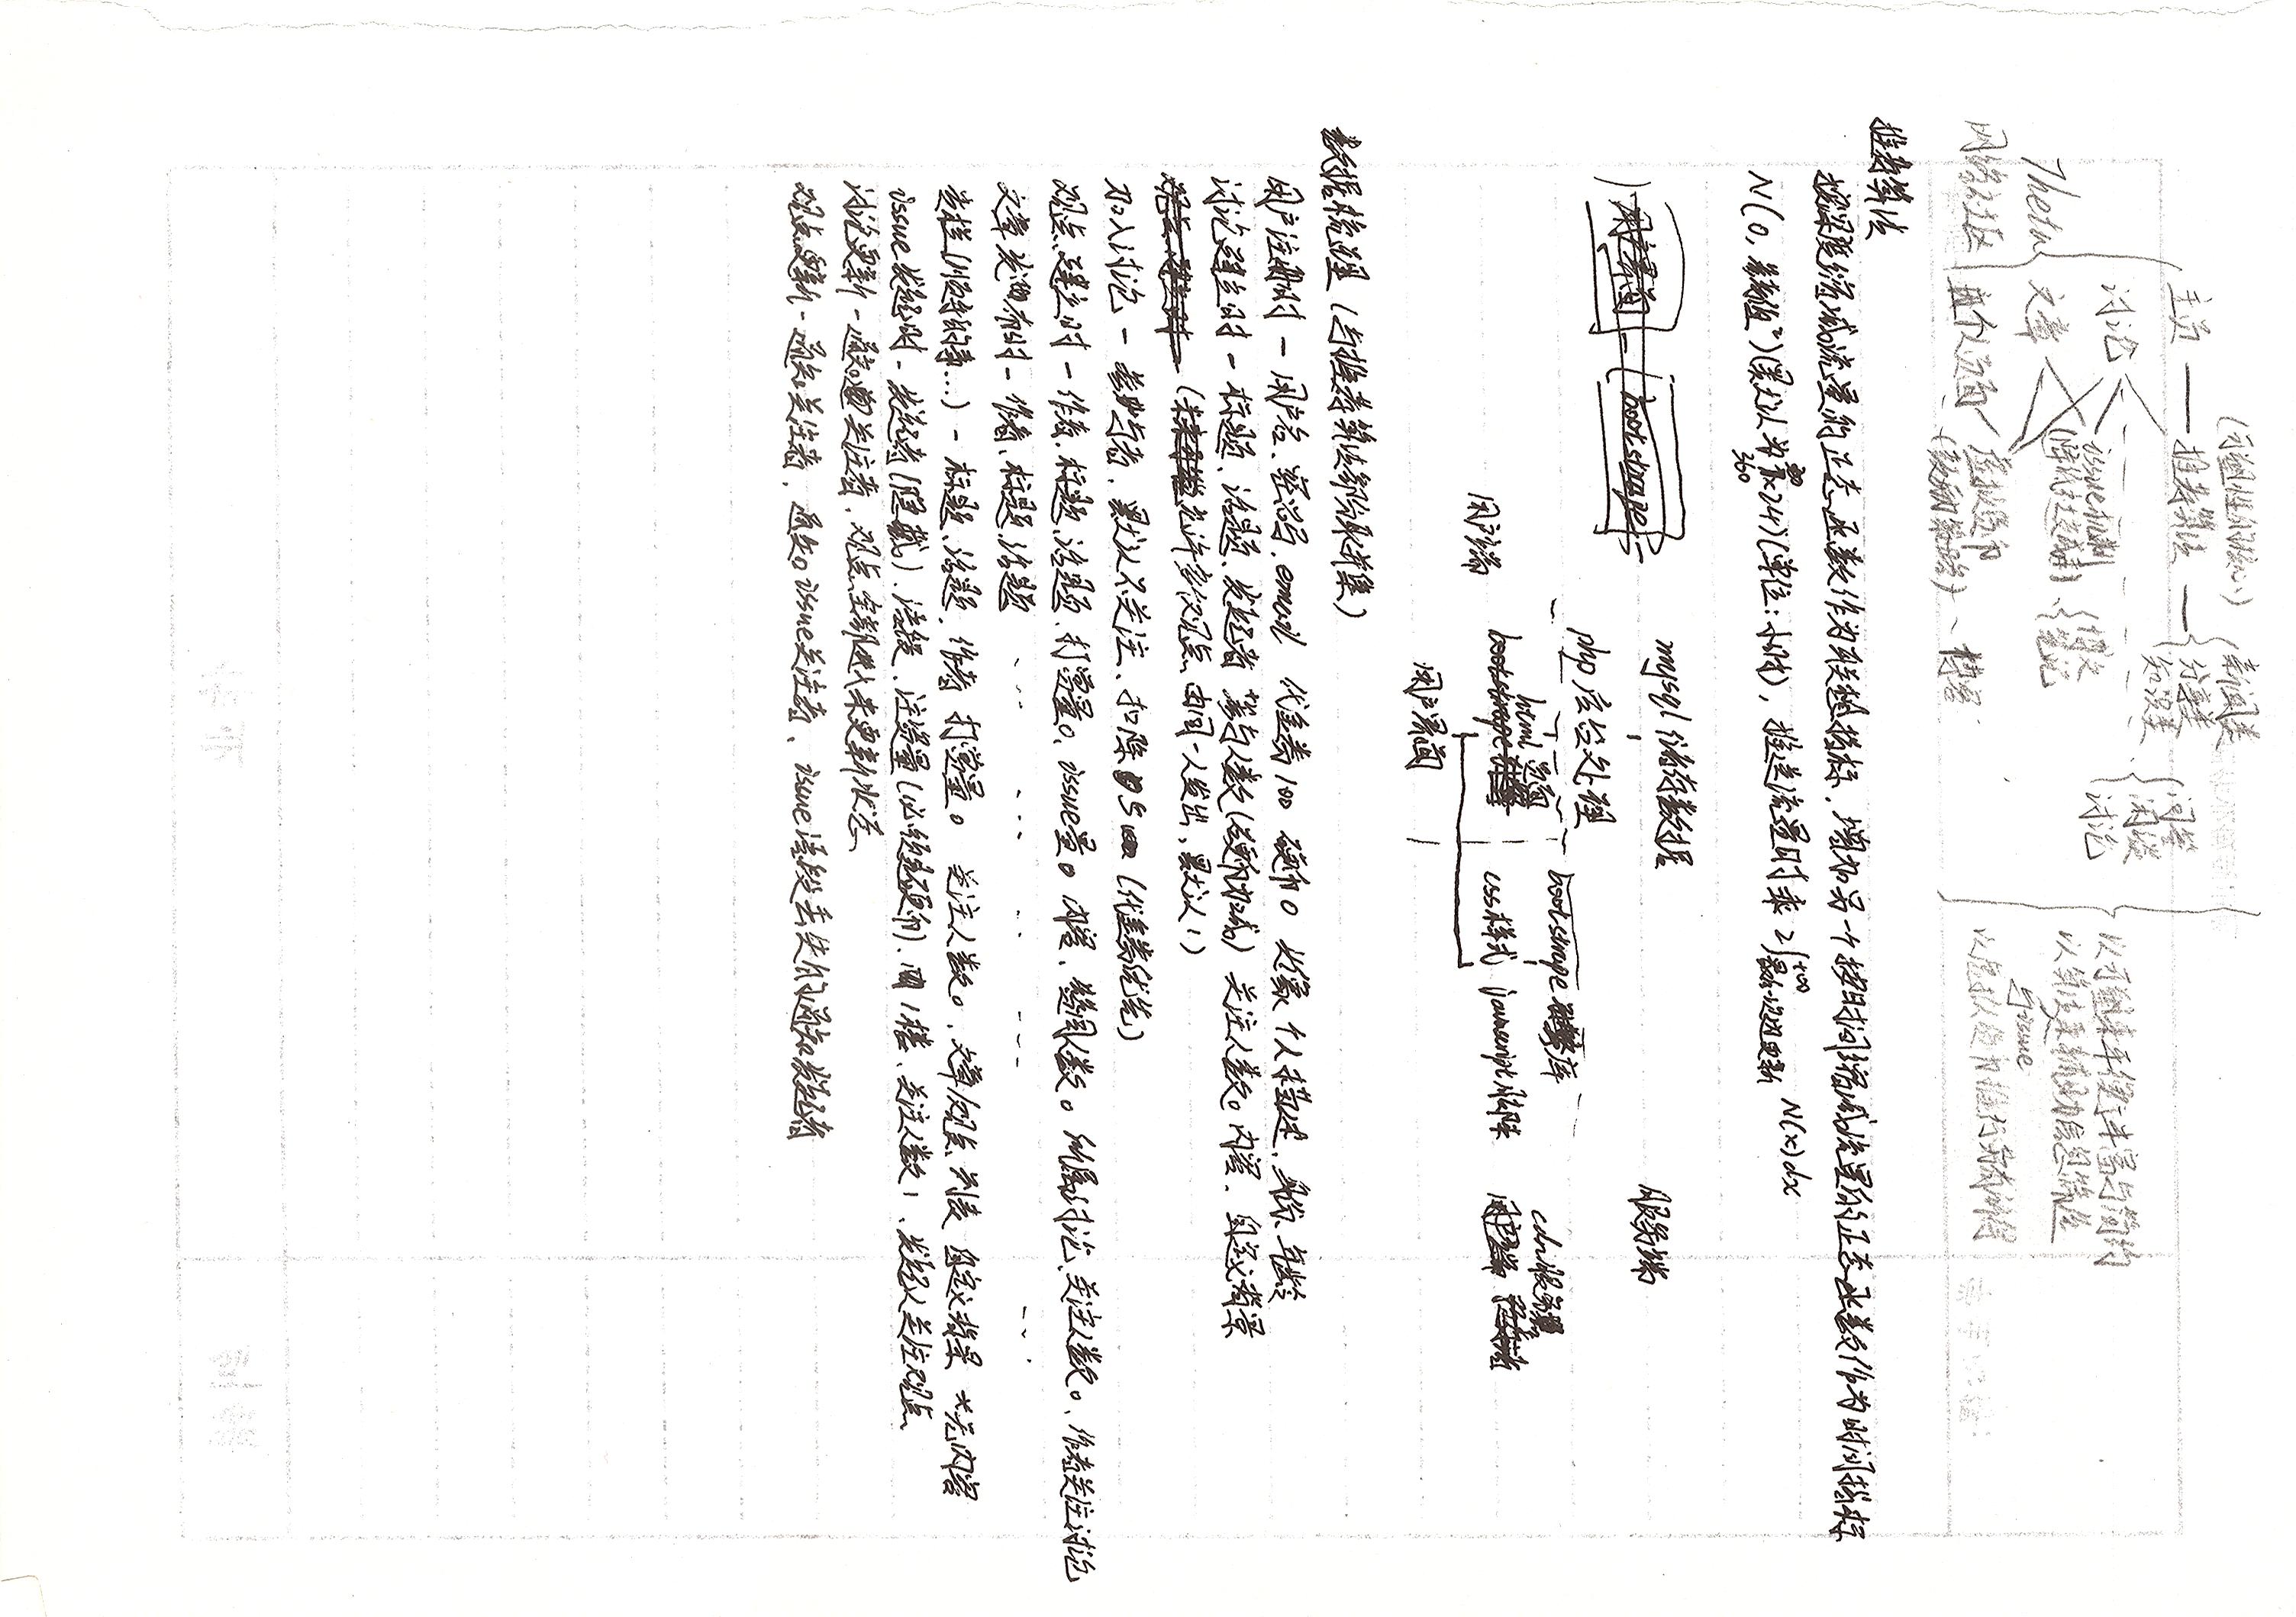 (可塑性的核心)
主页 — 推荐算法 — 新闻类 分享类 知识类
讨论
问答 闲谈 讨论
issue机制
(降低社交成本)
博文 笔记
Theta
网络社区
文章
个人页面
虚拟货币
(鼓励策略)
博客
以可塑来平衡丰富与简约
以算法来辅助信息筛选
与issue
以虚拟货币推行劳有所得
推荐算法
按深度缩减流量的正态函数作为联想指标,增加另一个按时间缩减流量的正态函数作为时间指标
N(0, 参考值²)(默认为 360)(单位:小时), 推送流量时乘 2∫最后一次更新^+∞ N(x)dx
mysql 储存数据
服务端
php 后台处理
bootstrape 库
html 页面
cdn服务器
用户端
css样式 javascript脚本
用户界面
数据梳理 (与推荐算法部分取并集)
用户注册时 — 用户名、密码、email 代金券100 硬币0 头像 个人描述、身份、年龄
讨论建立时 — 标题、话题、发起者 参与人数(硬币加成) 关注人数0 内容、自定义背景
(允许多个观点由同一人发出、默认1)
加入讨论 — 参与者、默认不关注、扣除5(代金券优先)
观点建立时 — 作者、标题、话题、打赏量0、issue量0 内容、赞同人数0 所属讨论、关注人数0、作者关注讨论
文章发布时 — 作者、标题、话题 ... ... ... ... ...
专栏(顺手的事...) — 标题、话题、作者 打赏量0 关注人数0、文章/观点列表 自定义背景 *无内容
issue发起时 — 发起者(隐藏)、语段、注资量(必须是硬币)、1楼、关注人数1、发起人关注观点
讨论更新 — 通知关注者、观点全部进入未更新状态
观点更新 — 通知关注者、通知issue关注者、issue语段丢失的通知发起者